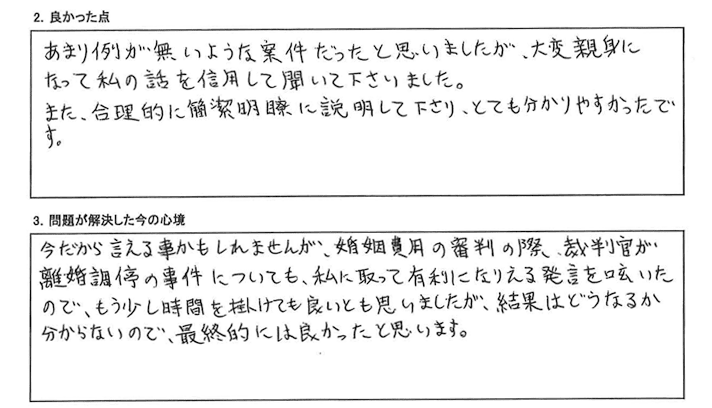 2. 良かった点
あまり例が無いような案件だったと思いましたが、大変親身に
なって私の話を信用して聞いて下さいました。
また、合理的に簡潔明瞭に説明して下さり、とても分かりやすかったで
す。
3. 問題が解決した今の心境
今だから言える事かもしれませんが、婚姻費用の審判の際、裁判官が
離婚調停の事件についても、私に取って有利になりえる発言を呟いた
ので、もう少し時間を掛けても良いとも思いましたが、結果はどうなるか
分からないので、最終的には良かったと思います。